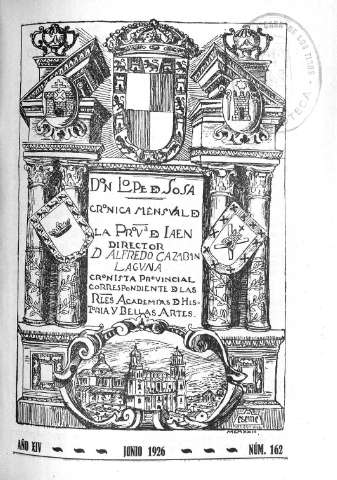 DON LOPE D SOSA
CRONICA MENSVAL D
LA PROVA D JAEN
DIRECTOR
D ALFREDO CAZABAN
LAGUNA
CRONISTA PROVINCIAL
CORRESPONDIENTE D LAS
RLES ACADEMIAS D HIS-
TORIA Y BELLAS ARTES.
MCMXXII
AÑO XIV JUNIO 1926 NÚM. 162